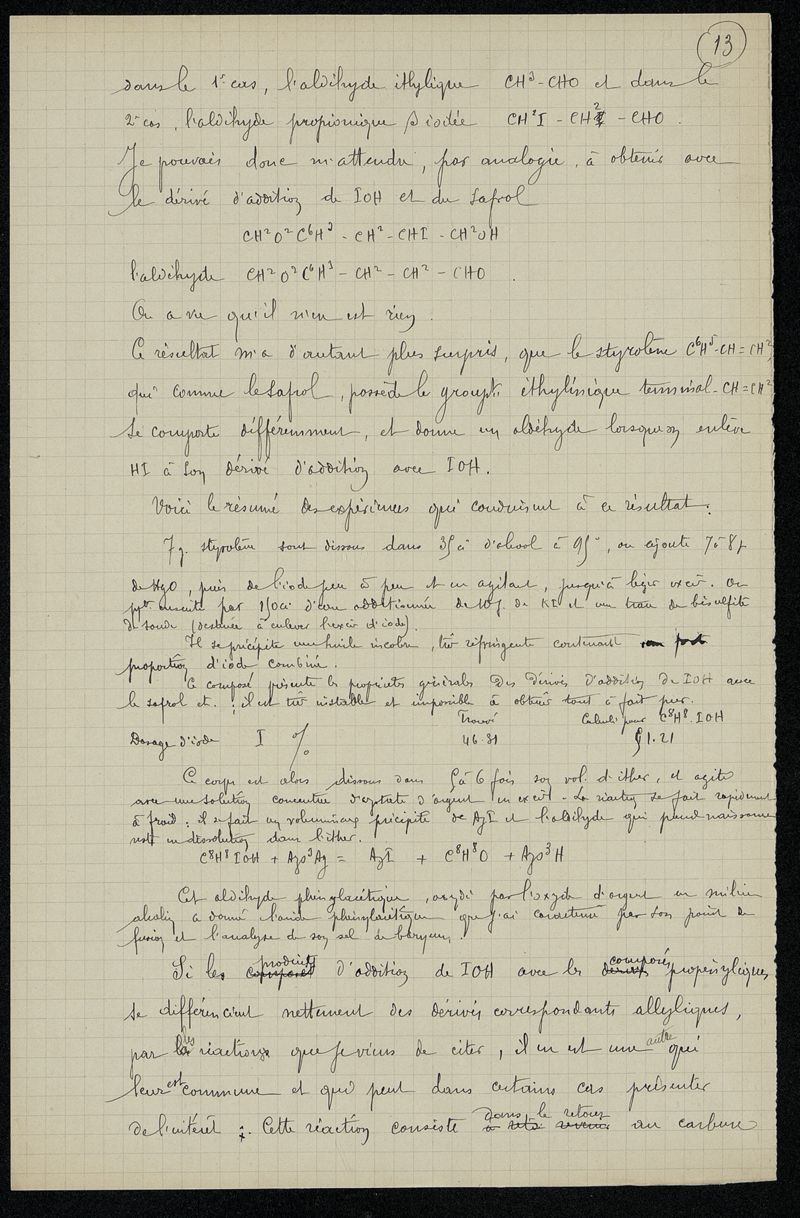 13
dans le 1er cas, l'aldéhyde éthylique CH³-CHO et dans le
2e cas, l'aldéhyde propionique β iodée CH²I - CH² - CHO.
Je pouvais donc m'attendre, par analogie, à obtenir avec
le dérivé d'addition de IOH et du safrol
CH²O²C⁶H³ - CH² - CHI - CH²OH
l'aldéhyde CH²O²C⁶H³ - CH² - CH² - CHO.
On a vu qu'il n'en est rien.
Ce résultat m'a d'autant plus surpris, que le styrolène C⁶H⁵-CH=CH²,
qui comme le safrol, possède le groupt éthylénique terminal -CH=CH²
se comporte différemment, et donne un aldéhyde lorsqu'on enlève
HI à son dérivé d'addition avec IOH.
Voici le résumé des expériences qui conduisent à ce résultat:
7g. styrolène sont dissous dans 35cc d'alcool à 95°, on ajoute 7 à 8g
de HgO, puis de l'iode peu à peu et en agitant, jusqu'à léger excès. On
ppte ensuite par 150cc d'eau additionnée de 10g. de KI et une trace de bisulfite
de soude (destinée à enlever l'excès d'iode).
Il se précipite une huile incolore, très réfringente contenant
proportion d'iode combiné.
Ce composé présente les propriétés générales des dérivés d'addition de IOH avec
le safrol etc.; il est très instable et impossible à obtenir tout à fait pur.
Trouvé Calculé pour C⁸H⁸.IOH
Dosage d'iode I % 46.31 51.21
Ce corps est alors dissous dans 5 à 6 fois son vol. d'éther, et agité
avec une solution concentrée d'azotate d'argent en excès. La réaction se fait rapidement
à froid: il se fait un volumineux précipité de AgI et l'aldéhyde qui prend naissance
reste en dissolution dans l'éther.
C⁸H⁸IOH + AzO³Ag = AgI + C⁸H⁸O + AzO³H
Cet aldéhyde phénylacétique, oxydé par l'oxyde d'argent en milieu
alcalin a donné l'acide phénylacétique que j'ai caractérisé par son point de
fusion et l'analyse de son sel de baryum.
Si les composés produits d'addition de IOH avec les dérivés composés propényliques
se différencient nettement des dérivés correspondants allyliques,
par les réactions que je viens de citer, il en est une autre qui
leur est commune et qui peut dans certains cas présenter
de l'intérêt. Cette réaction consiste dans le retour au carbure